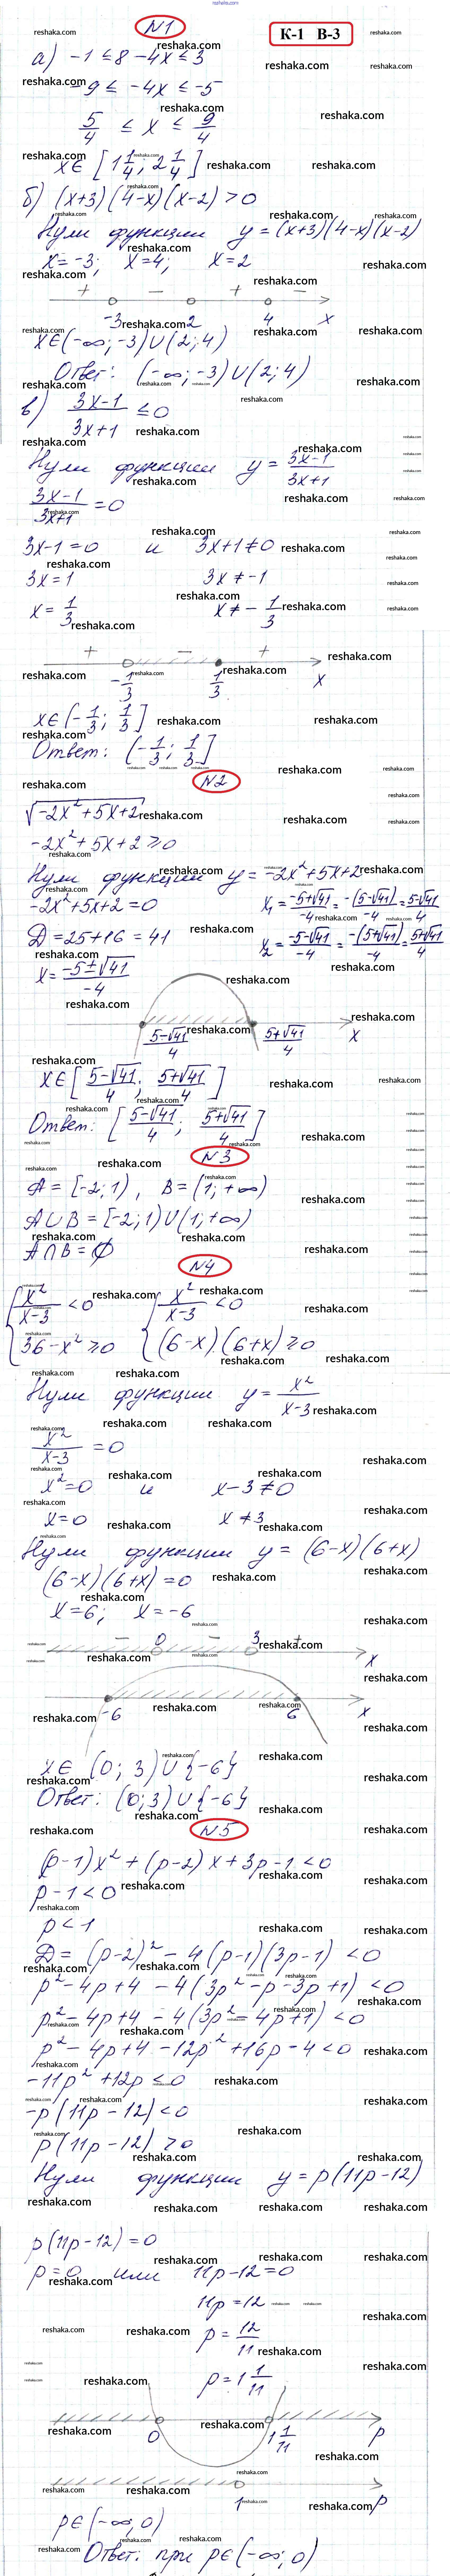 N1
К-1 В-3
а) -1 ≤ 8 - 4x ≤ 3
-9 ≤ -4x ≤ -5
5/4 ≤ x ≤ 9/4
x∈[1 1/4; 2 1/4]
б) (x+3)(4-x)(x-2) > 0
Нули функции y = (x+3)(4-x)(x-2)
x = -3; x = 4; x = 2
+ - + -
-3 2 4 x
x∈(-∞; -3)∪(2; 4)
Ответ: (-∞; -3)∪(2; 4)
в) (3x-1)/(3x+1) ≤ 0
Нули функции y = (3x-1)/(3x+1)
(3x-1)/(3x+1) = 0
3x-1 = 0 и 3x+1 ≠ 0
3x = 1 3x ≠ -1
x = 1/3 x ≠ -1/3
+ - +
-1/3 1/3 x
x∈(-1/3; 1/3]
Ответ: (-1/3; 1/3]
N2
√(-2x²+5x+2)
-2x²+5x+2 ≥ 0
Нули функции y = -2x²+5x+2
-2x²+5x+2 = 0 x₁ = (-5+√41)/-4 = -(5-√41)/-4 = (5-√41)/4
Д = 25+16 = 41 x₂ = (-5-√41)/-4 = -(5+√41)/-4 = (5+√41)/4
x = (-5±√41)/-4
(5-√41)/4 (5+√41)/4 x
x∈[(5-√41)/4; (5+√41)/4]
Ответ: [(5-√41)/4; (5+√41)/4]
N3
A = [-2; 1), B = (1; +∞)
A∪B = [-2; 1)∪(1; +∞)
A∩B = ∅
N4
{ x²/(x-3) < 0 { x²/(x-3) < 0
{ 36-x² ≥ 0 { (6-x)(6+x) ≥ 0
Нули функции y = x²/(x-3)
x²/(x-3) = 0
x² = 0 и x-3 ≠ 0
x = 0 x ≠ 3
Нули функции y = (6-x)(6+x)
(6-x)(6+x) = 0
x = 6; x = -6
- 0 - 3 + x
-6 6 x
x∈(0; 3)∪{-6}
Ответ: (0; 3)∪{-6}
N5
(p-1)x² + (p-2)x + 3p-1 < 0
p-1 < 0
p < 1
Д = (p-2)² - 4(p-1)(3p-1) < 0
p²-4p+4 - 4(3p²-p-3p+1) < 0
p²-4p+4 - 4(3p²-4p+1) < 0
p²-4p+4-12p²+16p-4 < 0
-11p²+12p < 0
-p(11p-12) < 0
p(11p-12) > 0
Нули функции y = p(11p-12)
p(11p-12) = 0
p = 0 или 11p-12 = 0
11p = 12
p = 12/11
p = 1 1/11
0 1 1/11 p
1 p
p∈(-∞; 0)
Ответ: при p∈(-∞; 0)
reshaka.com